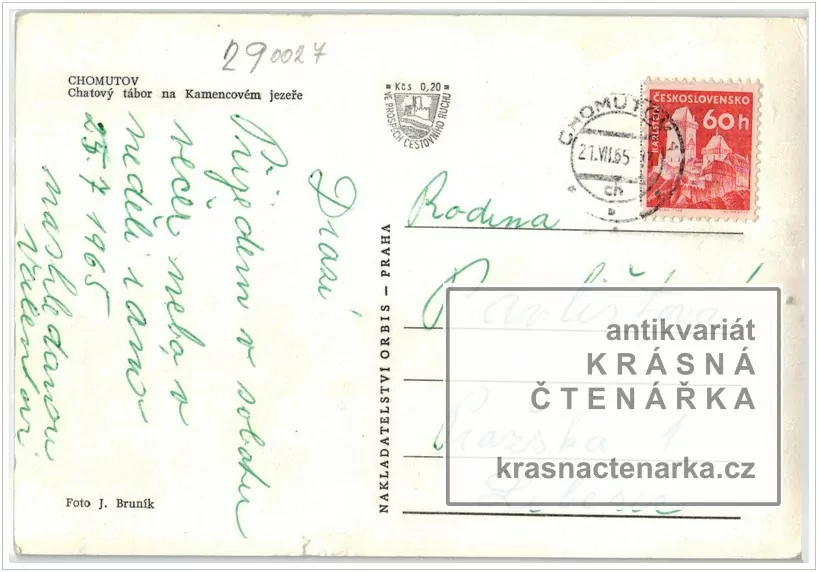 290027
CHOMUTOV
Chatový tábor na Kamencovém jezeře
Kčs 0,20
VE PROSPĚCH CESTOVNÍHO RUCHU
CHOMUTOV 4
21.VII.65
ch
b
ČESKOSLOVENSKO
60h
KARLŠTEJN
Drazí
Přijedem v sobotu
večer nebo v
neděli ráno
25.7 1965
nashledanou
NAKLADATELSTVÍ ORBIS – PRAHA
Rodina
Pavlištová
Pražská 1
Liberec
antikvariát
KRÁSNÁ
ČTENÁŘKA
krasnactenarka.cz
Foto J. Bruník